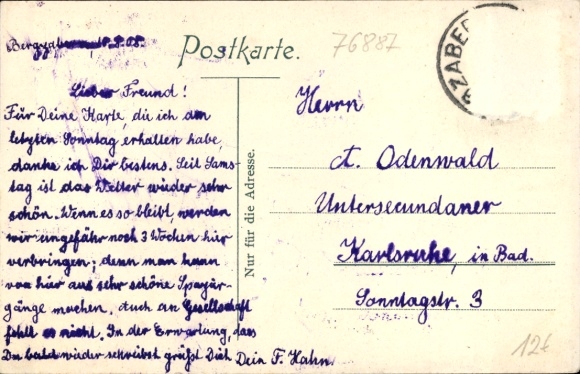 Postkarte.
76887
ZABE
Lieber Freund!
Für Deine Karte, die ich am
letzten Sonntag erhalten habe,
danke ich Dir bestens. Seit Sams-
tag ist das Wetter wieder sehr
schön. Wenn es so bleibt, werden
wir ungefähr noch 3 Wochen hier
verbringen; denn man kann
von hier aus sehr schöne Spazier-
gänge machen. Auch an Gesellschaft
fehlt es nicht. In der Erwartung, dass
Du bald wieder schreibst grüßt Dich Dein F. Hahn.
Nur für die Adresse.
Herrn
A. Odenwald
Untersecundaner
Karlsruhe, in Bad.
Sonntagstr. 3
12€